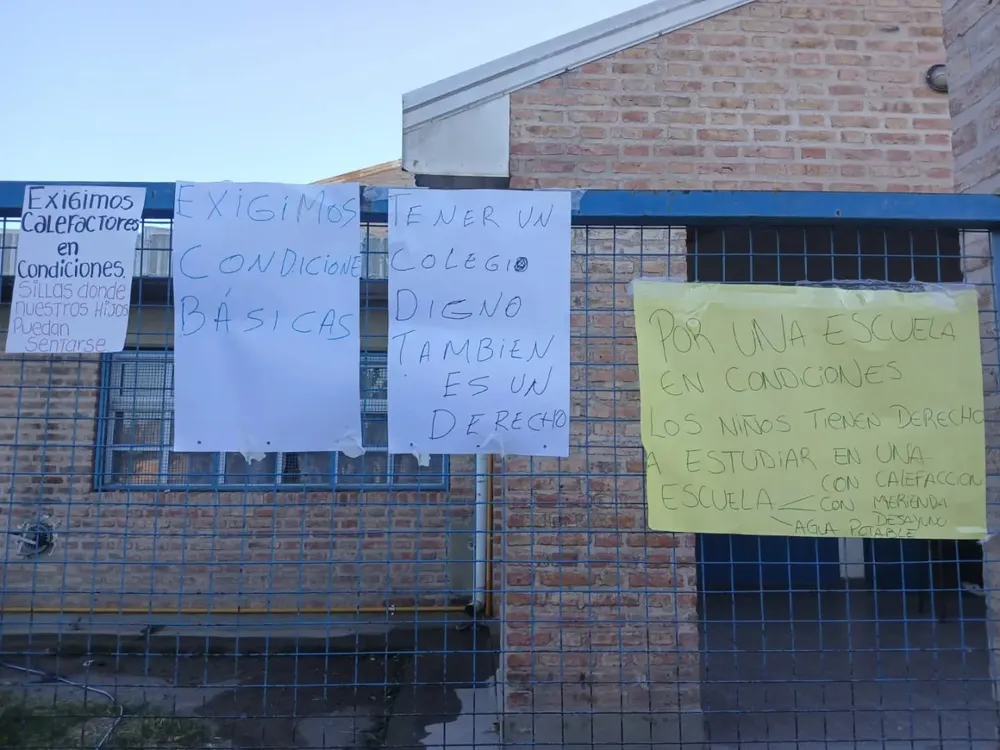 EXIGIMOS
CALEFACTORES
en
Condiciones.
SILLAS donde
nuestros HIJOS
Puedan
Sentarse
EXIGIMOS
CONDICIONE
BÁSICAS
TENER UN
COLEGIO
DIGNO
TAMBIEN
ES UN
DERECHO
POR UNA ESCUELA
EN CONDICIONES
LOS NIÑOS TIENEN DERECHO
A ESTUDIAR EN UNA
ESCUELA
CON CALEFACCION
CON MERIENDA
DESAYUNO
AGUA POTABLE